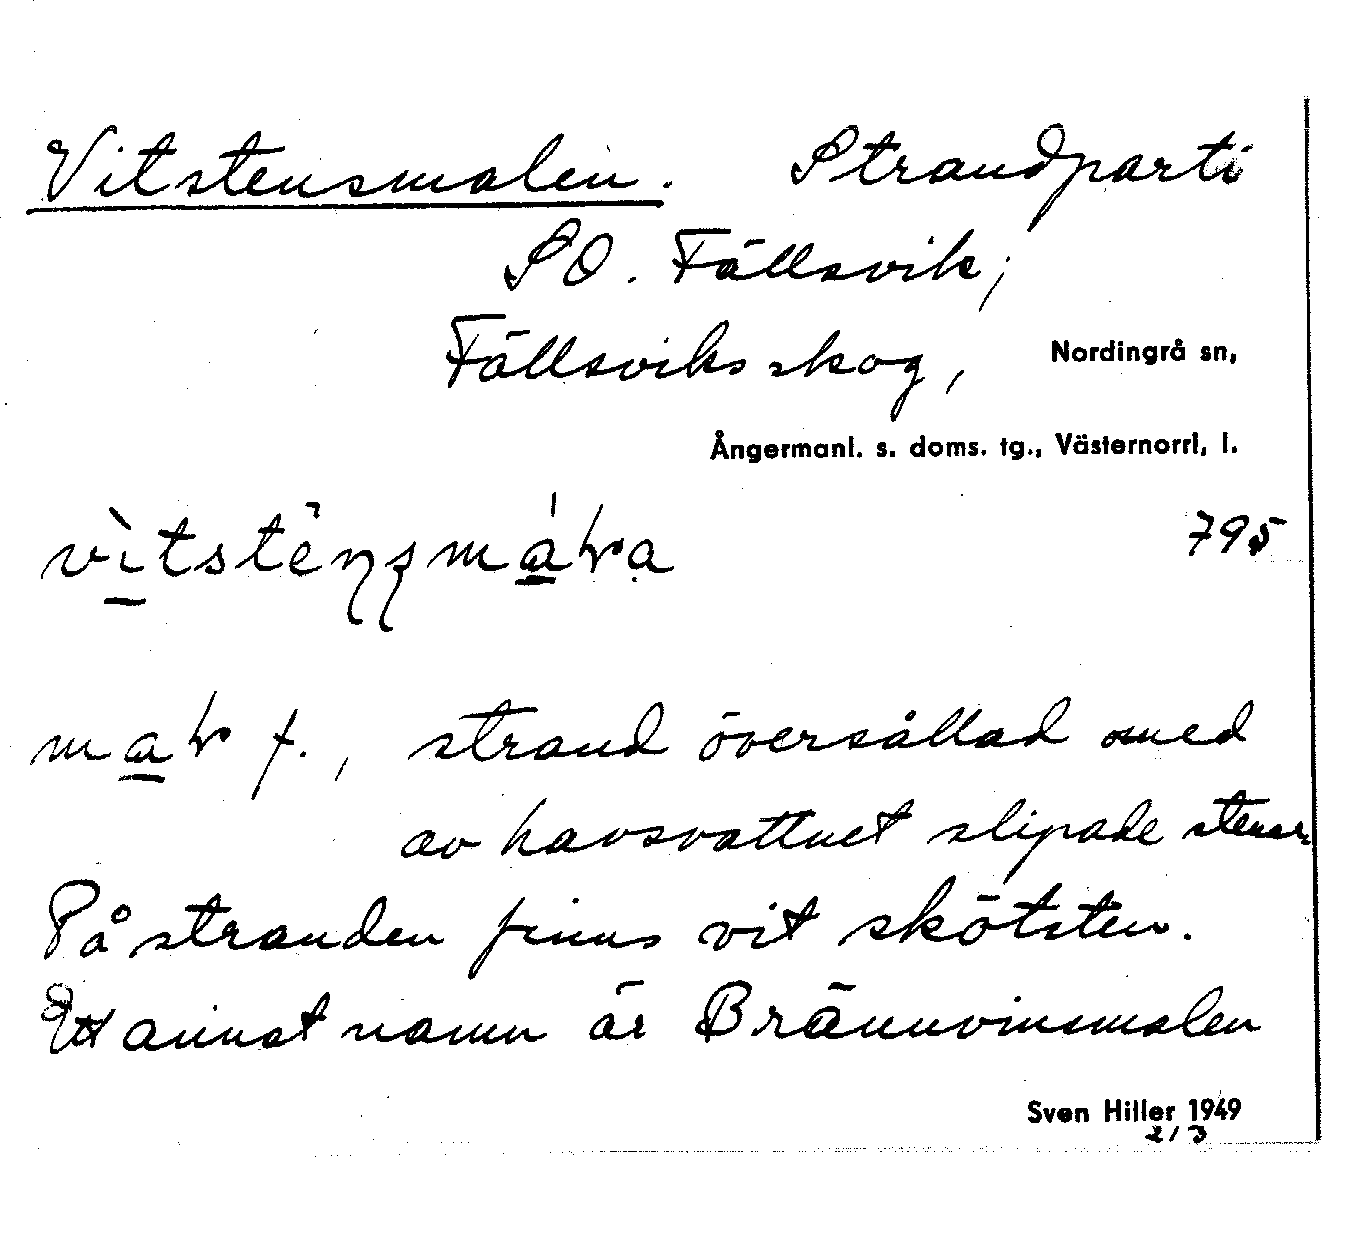 Vitstensmalen. Strandparti
SO. Fällsvik;
Fällsviks skog, Nordingrå sn,
Ångermanl. s. doms. tg., Västernorrl. l.
795
strand översållad med
av havsvattnet slipade stenar
På stranden finns vit skötsten.
Ett annat namn är Brännvinsmalen
Sven Hiller 1949
2/3